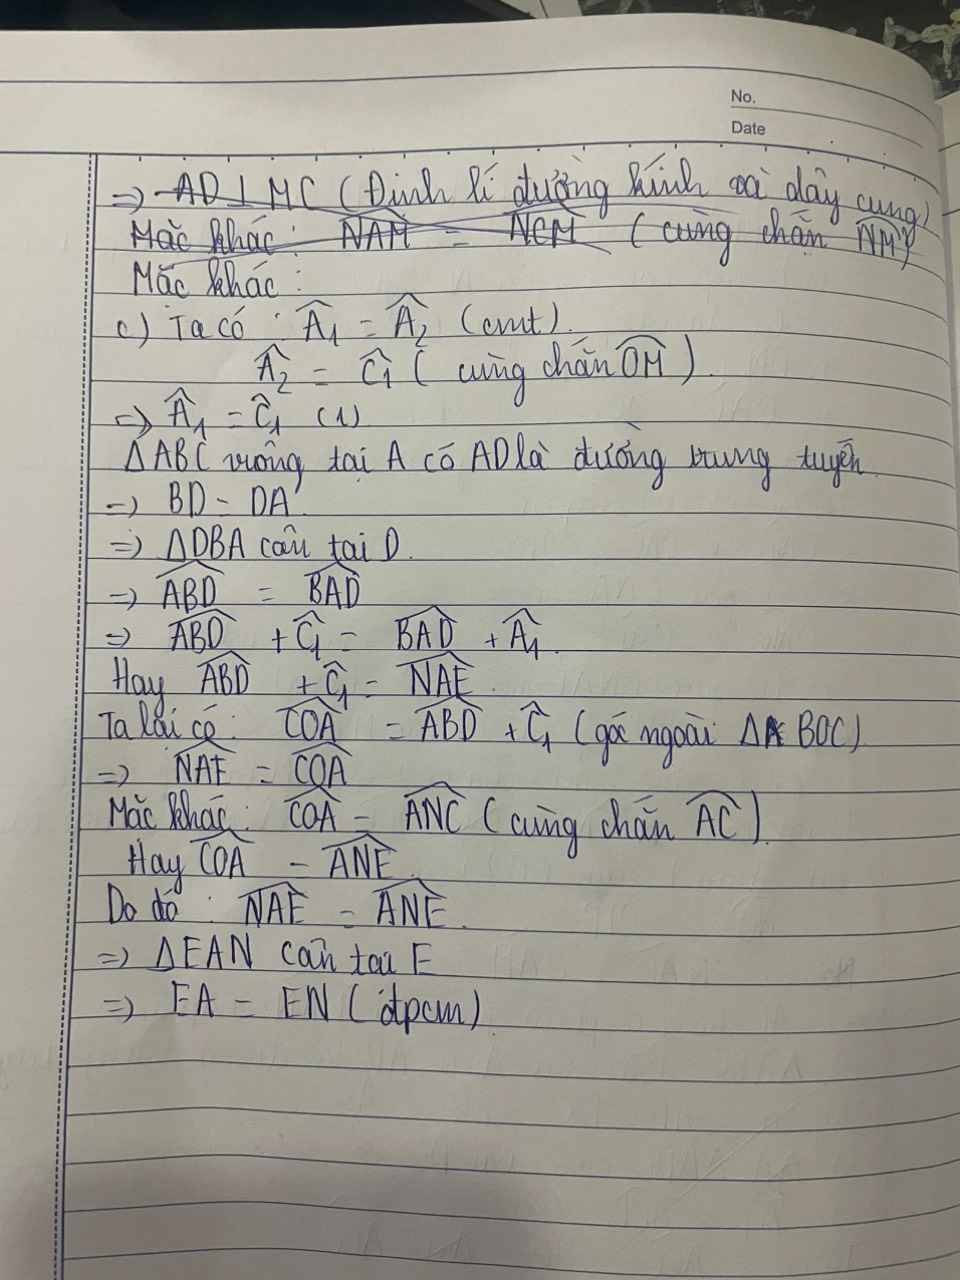 No.
Date
=> AD ⊥ MC (Định lí đường kính và dây cung)
Mặc khác: NAM = NCM (cùng chắn NM)
Mặc khác:
c) Ta có: Â1 = Â2 (cmt).
Â2 = Ĉ1 (cùng chắn OM).
=> Â1 = Ĉ1 (1)
ΔABC vuông tại A có AD là đường trung tuyến
=> BD = DA
=> ΔDBA cân tại D.
=> ABD = BAD
=> ABD + Ĉ1 = BAD + Â1.
Hay ABD + Ĉ1 = NAE.
Ta lại có: COA = ABD + Ĉ1 (góc ngoài Δ BOC)
=> NAE = COA
Mặc khác: COA = ANC (cùng chắn AC).
Hay COA = ANE.
Do đó: NAE = ANE.
=> ΔEAN cân tại E
=> EA = EN (đpcm)